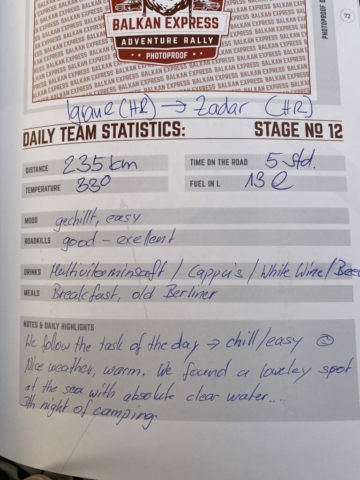 BALKAN EXPRESS
ADVENTURE RALLY
• PHOTOPROOF •
72
PHOTOPROOF
(HR) → Zadar (HR)
DAILY TEAM STATISTICS: STAGE Nº 12
DISTANCE 235 km TIME ON THE ROAD 5 Std.
TEMPERATURE 33° FUEL IN L 13 l
MOOD gechillt, easy
ROADKILLS good - exelent
DRINKS Multivitaminsaft / Cappu's / White Wine / Beer
MEALS Breakfast, old Berliner
NOTES & DAILY HIGHLIGHTS
We follow the task of the day → chill/easy ☺
Nice weather, warm. We found a loveley spot
at the sea with absolute clear water...
5th night of camping.